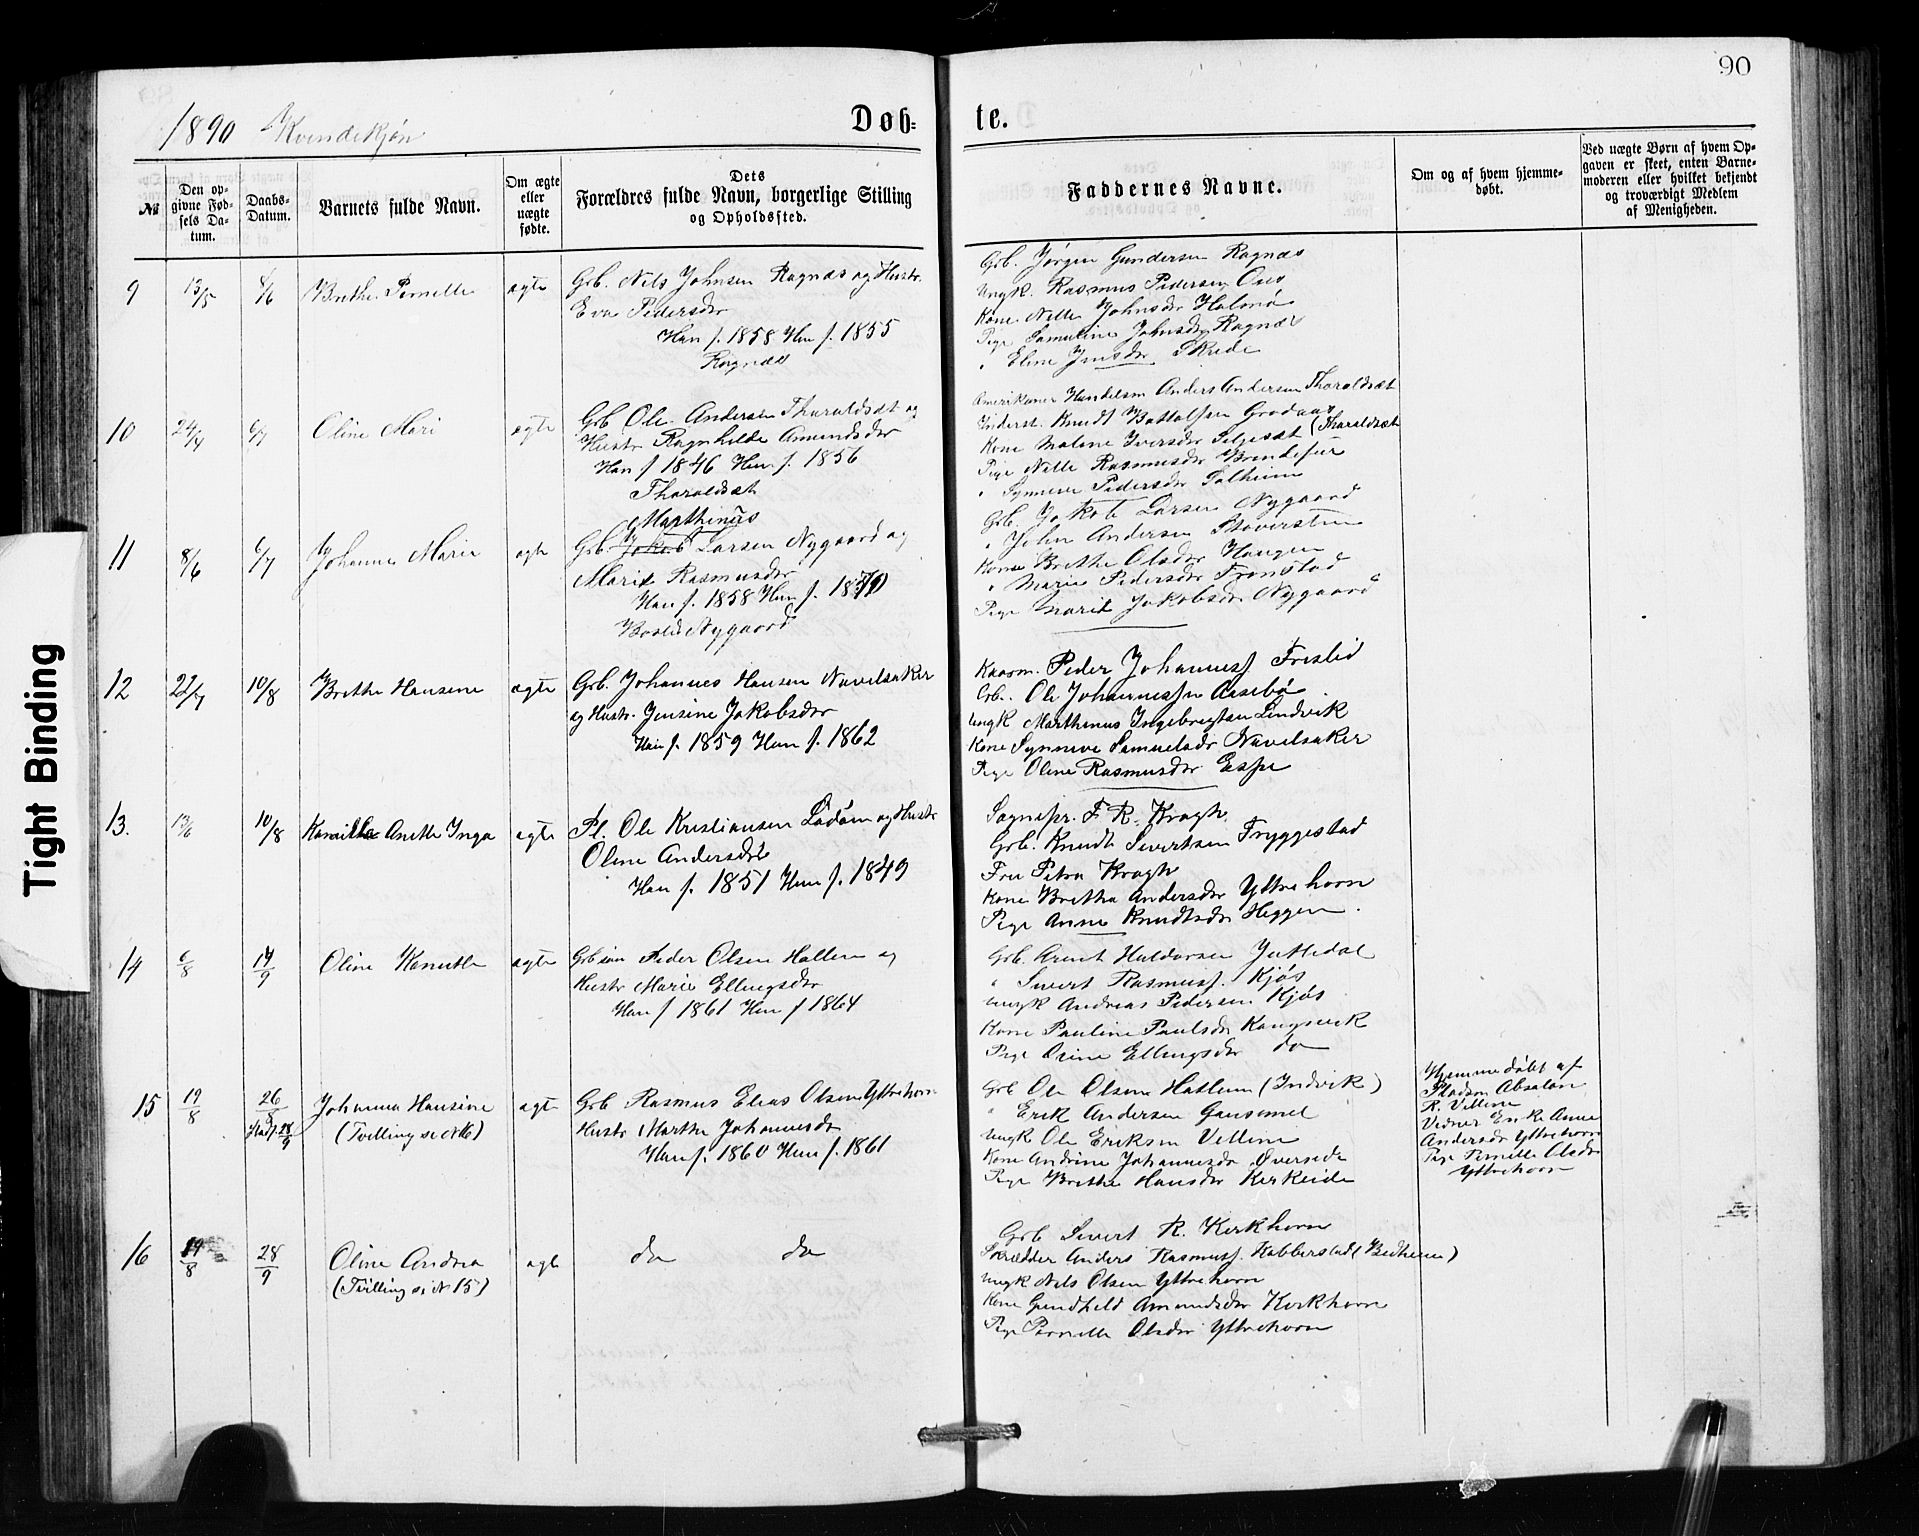 90
1890 Kvindekjøn
Døb=
te.
№
Den op-
givne Fød-
sels Da-
tum.
Daabs-
Datum.
Barnets fulde Navn.
Om ægte
eller
uægte
fødte.
Dets
Forældres fulde Navn, borgerlige Stilling
og Opholdssted.
Faddernes Navne.
Om og af hvem hjemme-
døbt.
Ved uægte Børn af hvem Op-
gaven er skeet, enten Barne-
moderen eller hvilket bekjendt
og troværdigt Medlem
af Menigheden.
9 13/5 8/6 Brithe Pernille ægte
Grb. Nils Johnsen Ragnæs og Hustr.
Eva Pedersdr
Han f. 1858 Hun f. 1855
Ragnæs
Grb. Jørgen Gundersen Ragnæs
Ungk. Rasmus Pedersen Aus
Kone Nille Johnsdr Holmø
Pige Samuline Johnsdr Ragnæs
" Eline Jensdr Skrede
10 24/4 6/7 Oline Mari ægte
Grb Ole Andersen Tharaldsæt og
Hustr Ragnhilde Amundsdr
Han f 1846 Hun f. 1856
Tharaldsæt
Amerikaner Handelsm Anders Andersen Tharaldsæt
Inderst. Knudt Bottolfsen Grodaas (Tharaldsæt
Kone Maline Iversdr Seljesæt
Pige Nille Rasmusdr Brendefur
" Synneve Pedersdr Solheim
11 8/6 6/7 Johanne Marie ægte
Marthinus
Grb. Jakob Larsen Nygaard og
Marie Rasmusdr
Han f. 1858 Hun f. 1870
Nygaard
Grb. Jakob Larsen Nygaard
" John Andersen Støverstein
Kone Brithe Olsdr Haugen
" Marie Pedersdr Tronstad
Pige Marie Jakobsdr Nygaard
12 22/7 10/8 Brithe Hansine ægte
Grb. Johannes Hansen Navelsaker
og Hustr. Jensine Jakobsdr
Han f. 1859 Hun f. 1862
Kaarm. Peder Johannesf Frislid
Grb. Ole Johannessen Aasebø
Ungk Marthinus Ingebrigtsen Lindvik
Kone Synneve Samuelsdr Navelsaker
Pige Oline Rasmusdr Espe
13. 13/6 10/8 Kamilla Anette Inga ægte
Pl. Ole Kristiansen Lødøen og Hustr
Oline Andersdr
Han f. 1851 Hun f. 1849
Sognepr. F. R. Krogh
Grb. Knudt Sivertsen Tryggestad
Fru Petra Krogh
Kone Brithe Andersdr Yttrehorn
Pige Anne Knudtsdr Heggen.
14 6/8 14/9 Oline Kanutte ægte
Grb søn Peder Olsen Hallem og
Hustr Marie Ellingsdr
Han f 1861 Hun f 1864
Grb. Arent Haldorsen Jyttedal
" Sivert Rasmusf. Kjøs
Ungk Andreas Pedersen Kjøs
Kone Pauline Paulsdr Kongsvik
Pige Oline Ellingsdr do
15 19/8 26/8 Johanna Hansine ægte
Stadf. 28/9 (Tvilling se N 16)
Grb Rasmus Elias Olsen Yttrehorn
Hustr Marthe Johannesdr
Han f. 1860 Hun f. 1861
Grb Ole Olsen Hatlem (Indvik)
" Erik Andersen Gausemel
Ungk Ole Eriksen Vellene
Kone Andrine Johannesdr Øverside
Pige Brithe Hansdr Kirkeide
Hjemmedøbt af
Pladsm Absalon
R. Vellene
Vidner Enke Anne
Andersdr Yttrehorn
Pige Pernille Olsdr
Yttrehorn
16 19/8 28/9 Oline Andrea ægte
(Tvilling se N 15)
do do
Grb Sivert R. Kirkhorn
Skrædder Anders Rasmusf. Kobberstad (Bedheim)
Ungk Nils Olsen Yttrehorn
Kone Gundhild Amundsdr Kirkhorn
Pige Pernille Olsdr Yttrehorn
Tight Binding